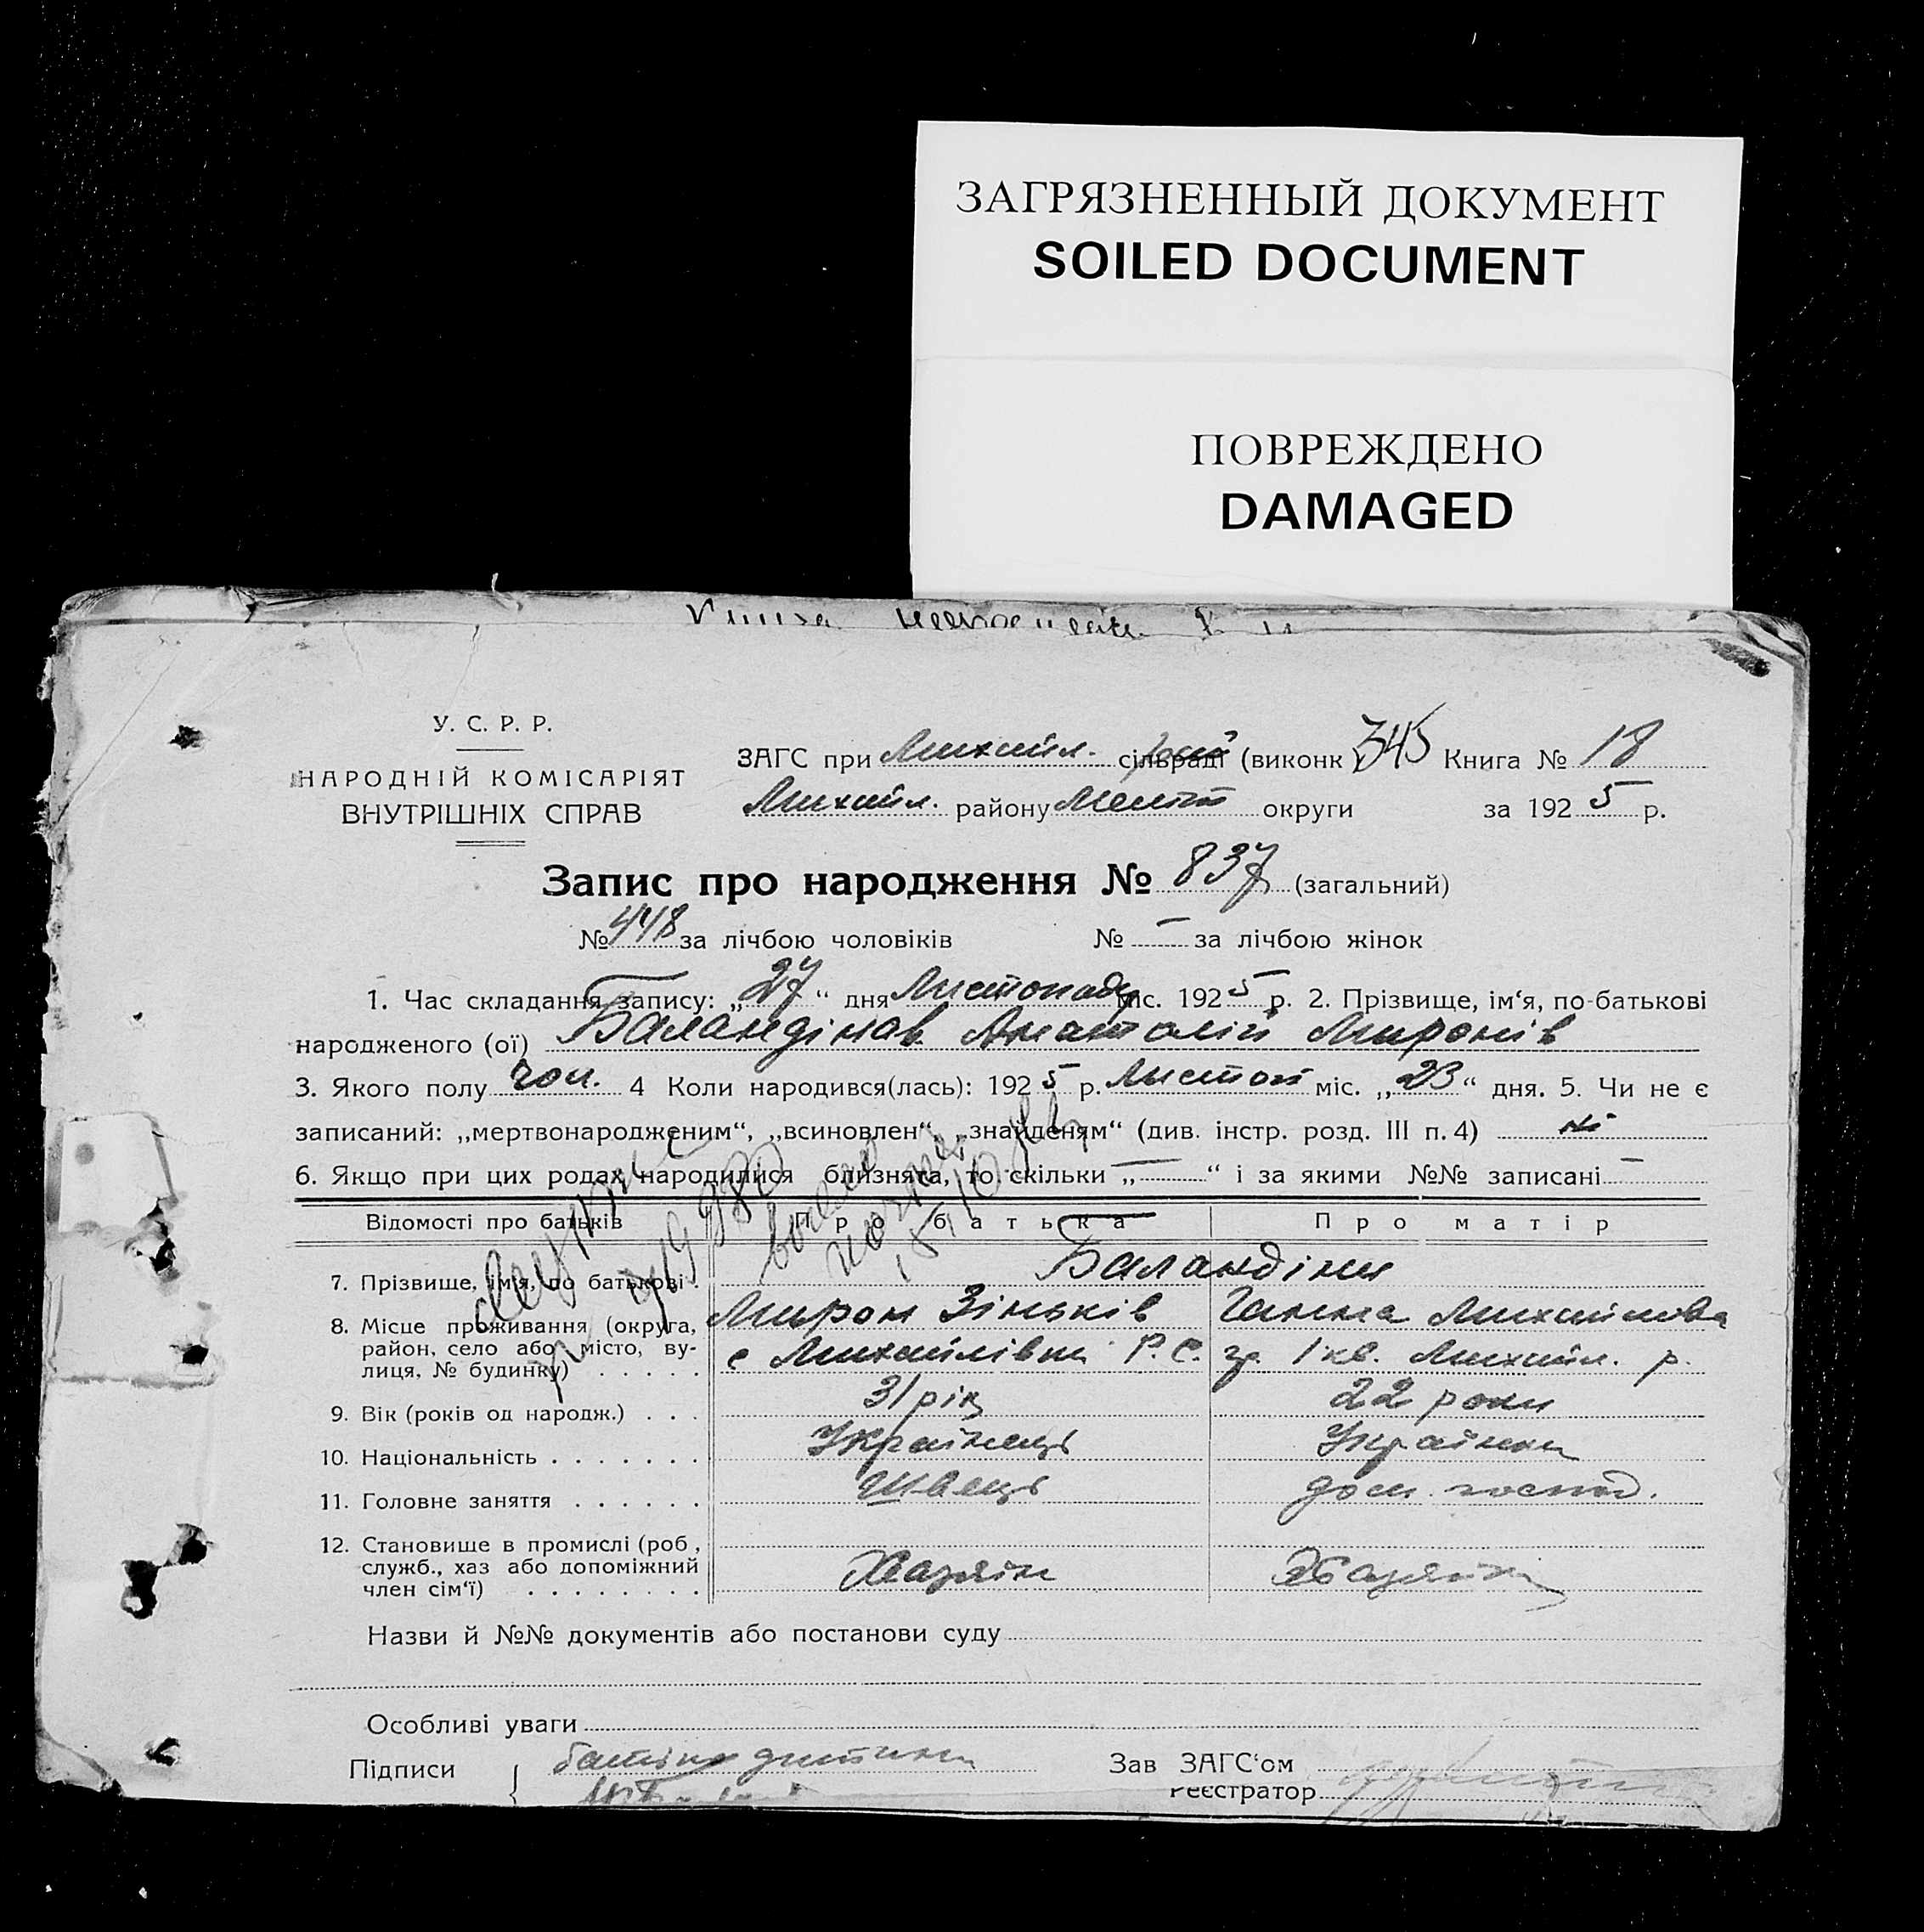 ЗАГРЯЗНЕННЫЙ ДОКУМЕНТ
SOILED DOCUMENT
ПОВРЕЖДЕНО
DAMAGED
У. С. Р. Р.
НАРОДНІЙ КОМІСАРІЯТ
ВНУТРІШНІХ СПРАВ
ЗАГС при Михайл. сільраді (виконк 345 Книга № 18
Михайл. району Меліт округи за 1925 р.
Запис про народження № 837 (загальний)
№ 448 за лічбою чоловіків № — за лічбою жінок
1. Час складання запису: „27“ дня Листопаду міс. 1925 р. 2. Прізвище, ім‘я, по-батькові
народженого (ої) Баландінав Анатолій Миронів
3. Якого полу чол. 4 Коли народився(лась): 1925 р. Листоп міс. „23“ дня. 5. Чи не є
записаний: „мертвонародженим“, „всиновлен“, „знайденям“ (див. інстр. розд. III п. 4) ні
6. Якщо при цих родах народилися близнята, то скільки „—“ і за якими №№ записані —
Відомості про батьків Про батька Про матір
7. Прізвище, ім‘я, по батькові . Баландіни
Мирон Зіньків Ганна Михайлова
8. Місце проживання (округа, район, село або місто, вулиця, № будинку) . . . . . с Михайлівка Р. С. 1 кв. Михайл. р.
9. Вік (років од народж.) . . . 31 рік 22 роки
10. Національність . . . . . . . Українець Українка
11. Головне заняття . . . . . . Швець дом. господ.
12. Становище в промислі (роб., служб., хаз або допоміжний член сім‘ї) . . . . . . . . Хазяїн Хазяйка
Назви й №№ документів або постанови суду
Особливі уваги
Підписи батько дитини Зав ЗАГС‘ом
Реєстратор